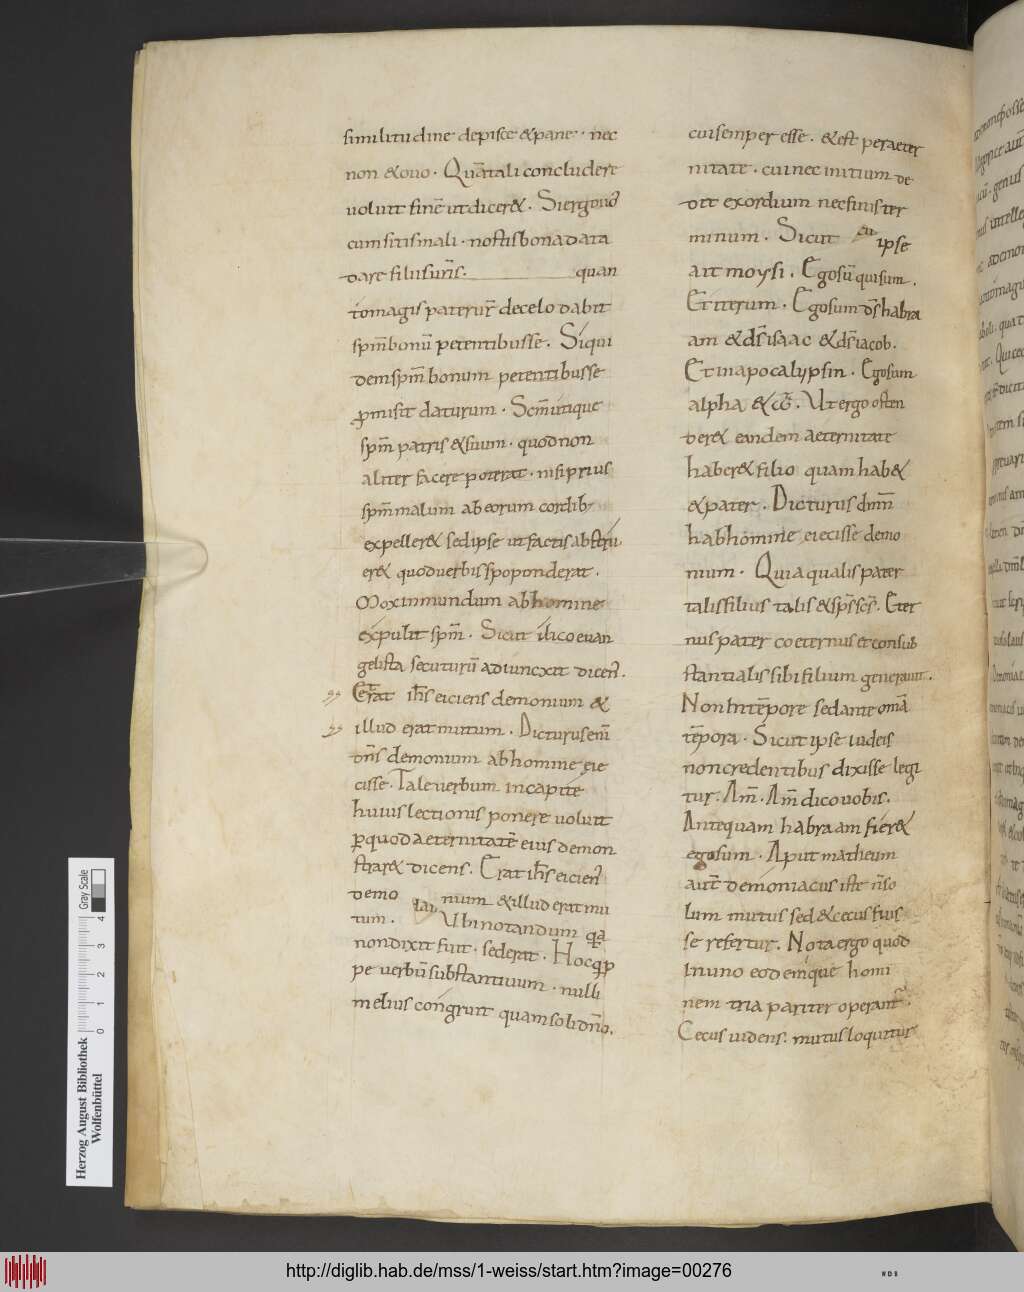 similitudine depisce &pane · nec
non &ouo · Quātali concludere
uoluit finē utdicer& · Siergouos
cumsitismali · nostisbonadata
dare filiisurīs. quan
tomagis paterur̄ decelo dabit
spm̄bonū petentibusse · Siqui
demspm̄ bonum petentibusse
ꝓmisit daturum · Scm̄utique
spm̄ patris &suum · quodnon
aliter facere poterat · nisi prius
spm̄malum abeorum cordib;
expeller& sedipse utfactis abstru
er& quoduerbisspoponderat.
Moxinmundum abhomine
expulit spm̄. Sicut ilico euan
gelista secuturū adiuncxit dicens̄.
Erat ih̄s eiciens demonium &
illud erat mutum · Dicturusenī
dn̄s demonium abhomine eie
cisse · Tale uerbum incapite
huius lectionis ponere uoluit
ꝑquod aeternitatē eius demon
strar& dicens. Erat ih̄s eicien̄s
demo nium &illud erat mu
tum. Ubinotandum qa
nondixit fuit · sederat. Hocqꝑp
pe uerbū substantiuum · nulli
melius congruit quamsolidn̄o.
cuisemper esse. &est peraeter
nitate. cuinec initium de
dit exordium necfinis ter
minum. Sicut ipse
ait moysi. Egosū quisum.
Et iterum. Egosum ds̄ habra
am &ds̄ isaac &ds̄ iacob.
Et inapocalypsin. Egosum
alpha &ω. Ut ergo osten
der& eandem aeternitate
haber& filio quam hab&
&pater. Dicturus dm̄n
habhomine eiecisse demo
nium. Quia qualis pater
talisfilius talis &sp̄s sc̄s. Eter
nus pater coeternus et consub
stantialis sibi filium generauit.
Non intēpore sedante omīa
tēpora. Sicut ipse iudeis
noncredentibus dixisse legi
tur. Am̄. Am̄ dicouobis.
Antequam habraam fier&
egosum. Aput matheum
autē demoniacus iste n̄so
lum mutus sed &cecus fuis
se refertur. Nota ergo quod
In uno eodemque homi
nem tria pariter operant̄.
Cecus uidens. mutus loquitur
Herzog August Bibliothek
Wolfenbüttel
Gray Scale
0 1 2 3 4
http://diglib.hab.de/mss/1-weiss/start.htm?image=00276